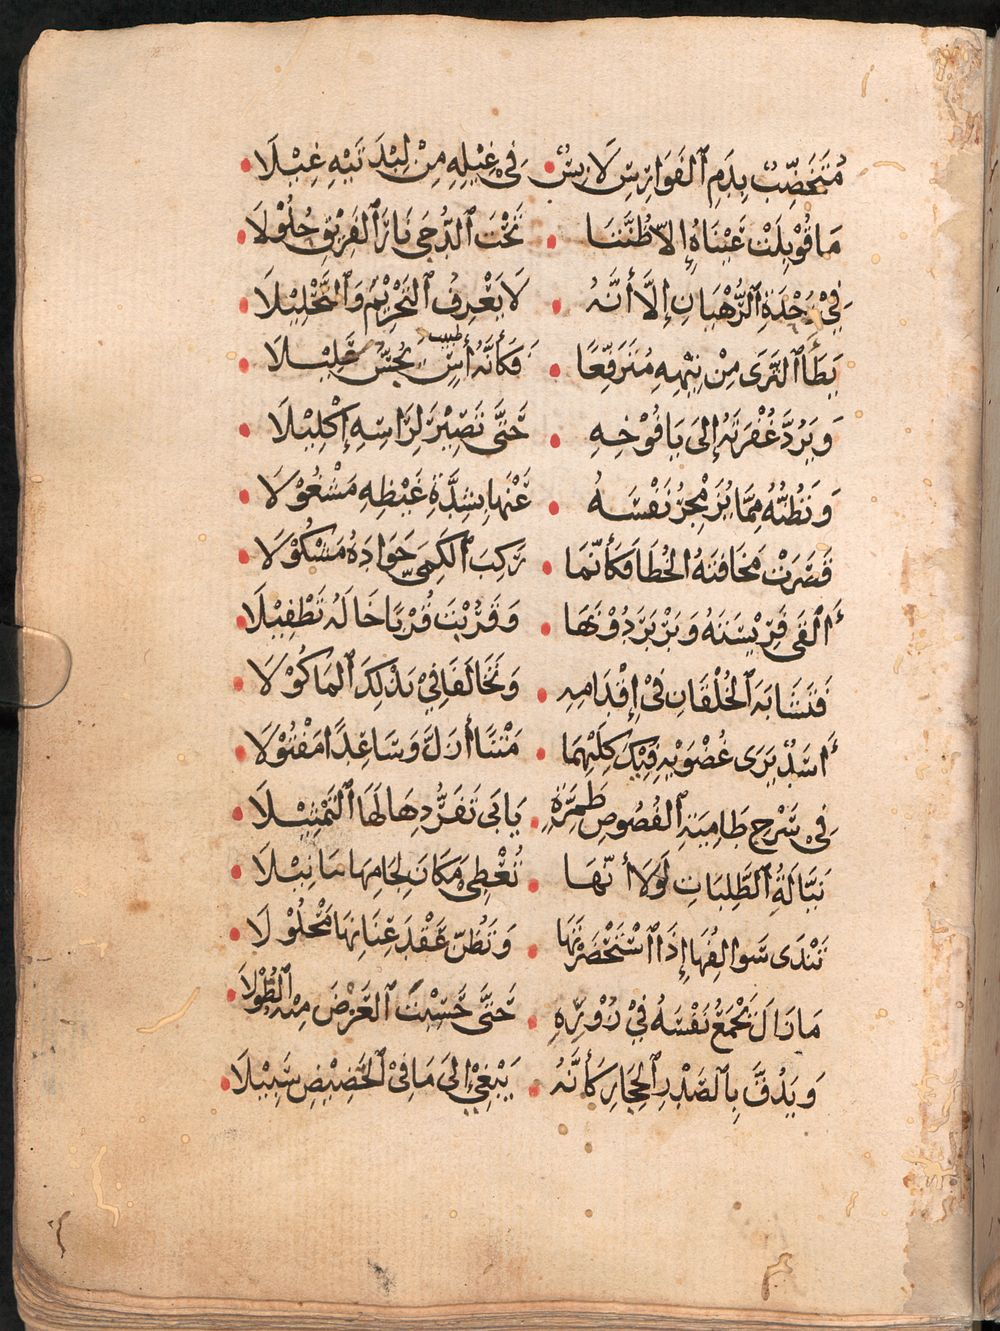 مُتَخَضِّبٌ بِدَمِ ٱلفَوَارِسِ لَابِسٌ • فِي غِيْلِهِ مِنْ لِبْدَتَيْهِ غِيْلَا •
مَا قُوْبِلَتْ عَيْنَاهُ إِلَّا ظُنَّتَا • تَحْتَ ٱلدُّجَى نَارَ ٱلفَرِيْقِ حُلُوْلَا •
فِيْ وَحْدَةِ ٱلرُّهْبَانِ إِلَّا أَنَّهُ • لَا يَعْرِفُ ٱلتَحْرِيْمَ وَٱلتَّحْلِيْلَا •
يَطَأُ ٱلثَّرَى مِنْ تِيْهِهِ مُتَرَفِّعًا • فَكَأَنَّهُ أٰسٍ يَجُسُّ عَلِيْلَا •
طبيب
وَيَرُدُّ غُفْرَتَهُ إِلَى يَافُوْخِهِ • حَتَّى تَصِيْرَ لِرَاسِهِ إِكْلِيْلَا •
وَتَظُنُّهُ مِمَّا يُزَمْجِرُ نَفْسَهُ • عَنْهَا بِشِدَّةِ غَيْظِهِ مَشْغُوْلَا •
قَصَرَتْ مَخَافَتُهُ الخُطَا فَكَأَنَّمَا • رَكِبَ ٱلكَمِيُّ جَوَادَهُ مَشْكُوْلَا •
أَلْقَى فَرِيْسَتَهُ وَبَرْبَرَ دُوْنَهَا • وَقَرُبْتَ قُرْبًا خَالَهُ تَطْفِيْلَا •
فَتَشَابَهَ ٱلخُلْقَانِ فِيْ إِقْدَامِهِ • وَتَخَالَفَا فِيْ بَذْلِكَ ٱلمَاكُوْلَا •
أَسَدٌ يَرَى عُضْوَيْهِ فِيْكَ كِلَيْهِمَا • مَتْنًا أَزَلَّ وَسَاعِدًا مَفْتُوْلَا •
فِي سَرْجِ ظَامِيَةِ ٱلفُصُوصِ طِمِرَّةٍ • يَابَى تَفَرُّدِهَا لَهَا ٱلتَّمْثِيْلَا •
نَيَّالَةُ ٱلطَّلِبَاتِ لَوْلَا أَنَّهَا • تُعْطِيْ مَكَانَ لِجَامِهَا مَا نِيْلَا •
تَنْدَى سَوَالِفُهَا إِذَا ٱسْتَحْضَرْتَهَا • وَتَظُنُّ عَقْدَ عِنَانِهَا مَحْلُوْلَا •
مَازَالَ يَجْمَعُ نَفْسَهُ فِيْ زُوْرِهِ • حَتَّى حَسِبْتَ ٱلعَرْضَ مِنْهُ ٱلطُّوْلَا •
وَيَدُقُّ بِٱلصَّدْرِ ٱلحِجَارَ كَأَنَّهُ • يَبْغِيْ إِلَى مَا فِيْ ٱلحَضِيْضِ سَبِيْلَا •